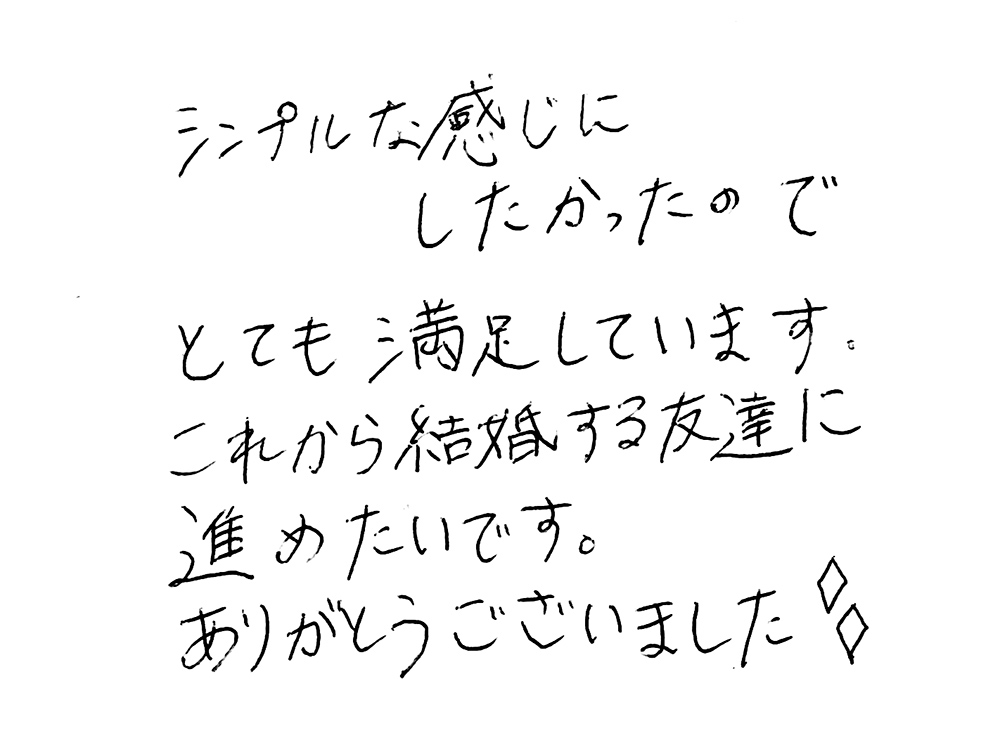 シンプルな感じに
したかったので
とても満足しています。
これから結婚する友達に
進めたいです。
ありがとうございました